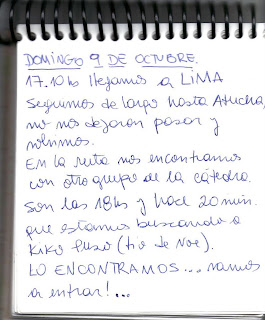 DOMINGO 9 DE OCTUBRE.
17.10hs llegamos a LIMA
Seguimos de largo hasta Atucha,
no nos dejaron pasar y
volvimos.
EN la ruta nos encontramos
con otro grupo de la cátedra.
Son las 18hs y hace 20 min.
que estamos buscando a
Kiko (tío de Noe).
LO ENCONTRAMOS... vamos
a entrar!...